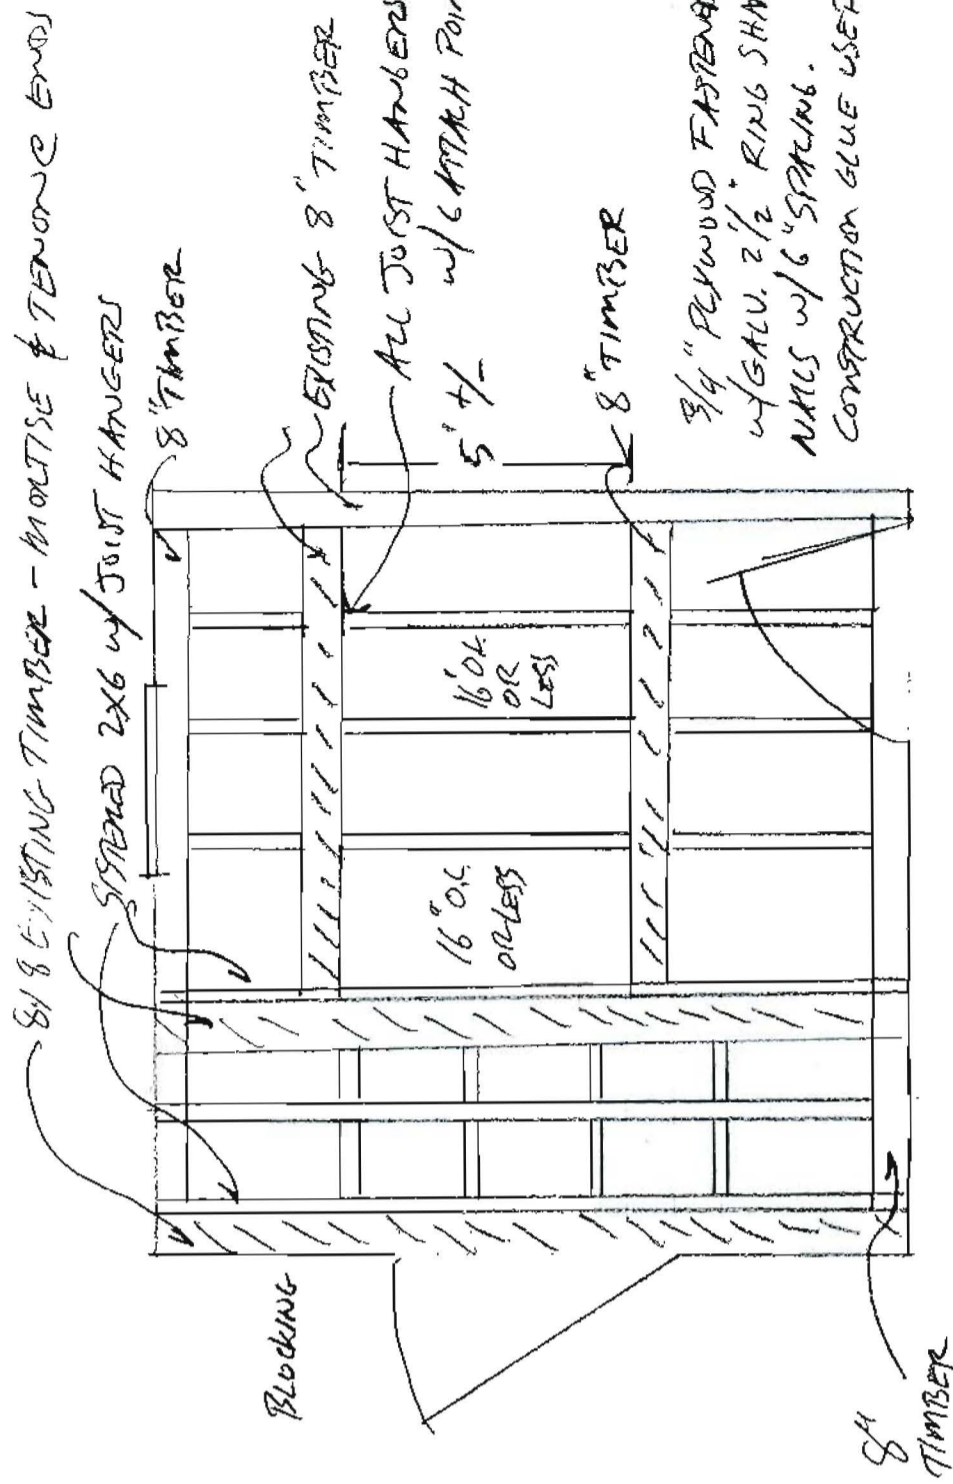 8x8 EXISTING TIMBER - MORTISE & TENONE ENDS
SISTERED 2X6 w/ JOIST HANGERS
8" TIMBER
EXISTING 8" TIMBER
ALL JOIST HANGERS
w/ 6 ATTACH POIN
5' +/-
8" TIMBER
3/4" PLYWOOD FASTENE
w/ GALV. 2 1/2" RING SHAN
NAILS w/ 6" SPACING.
CONSTRUCTION GLUE USED
16" O.C.
OR
LESS
16" O.C.
OR LESS
BLOCKING
8"
TIMBER